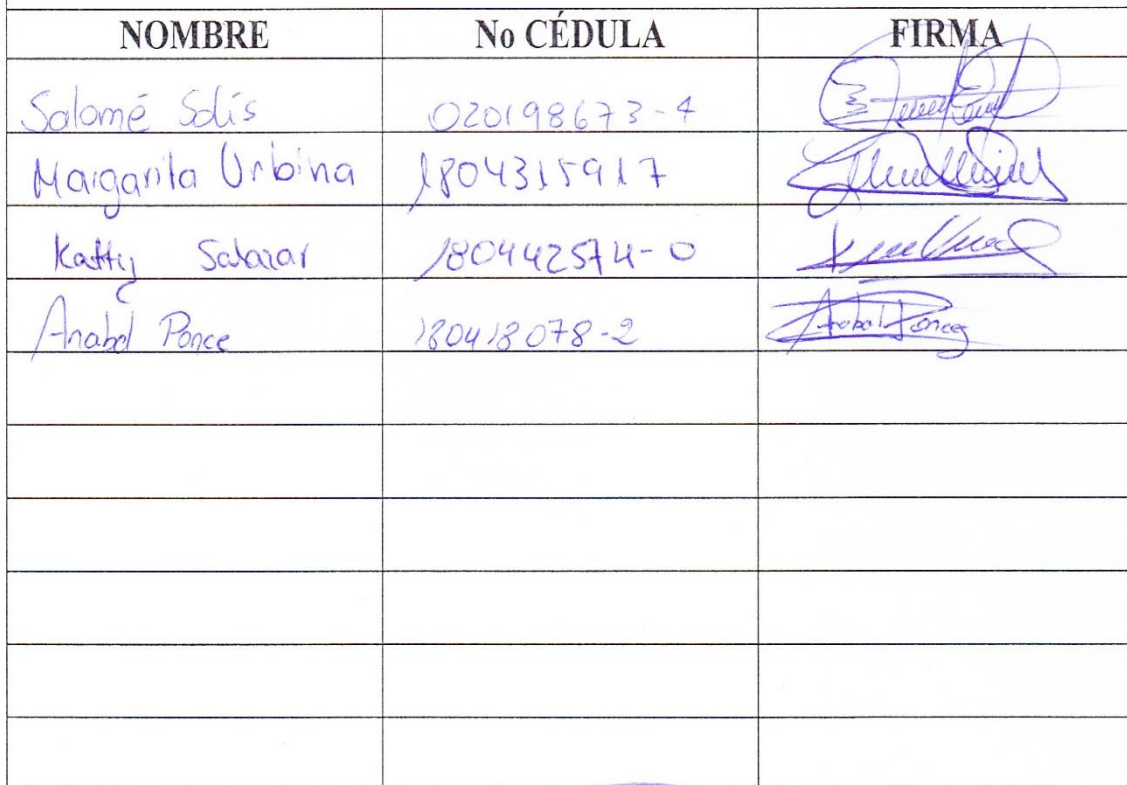 NOMBRE No CÉDULA FIRMA
Salomé Solís 020198673-4
Margarita Urbina 1804315917
Katty Salazar 180442574-0
Anabel Ponce 180418078-2 Anabel Ponce